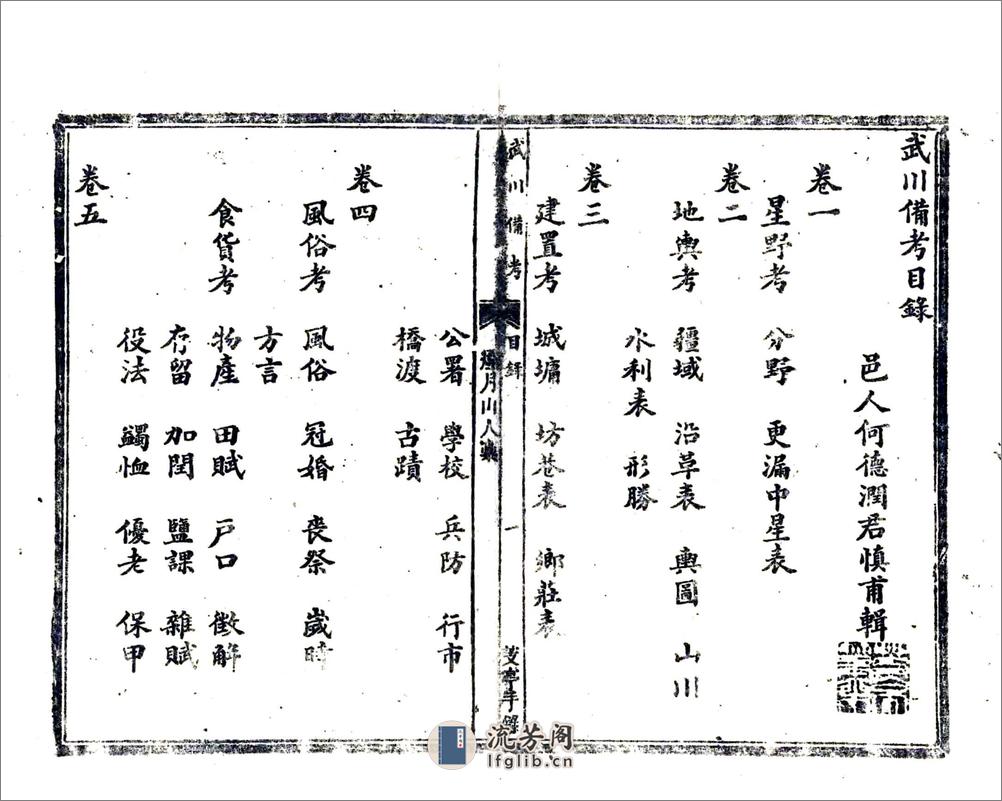 武川備考目錄
邑人何德潤君慎甫輯
卷一
星野考 分野 更漏中星表
卷二
地輿考 疆域 沿革表 輿圖 山川
水利表 形勝
卷三
建置考 城墉 坊巷表 鄉莊表
武川備考 目錄 煙月山人藁 一 手錄
公署 學校 兵防 行市
橋渡 古蹟
卷四
風俗考 風俗 冠婚 喪祭 歲時
方言
食貨考 物產 田賦 戶口 徵解
存留 加閏 鹽課 雜賦
役法 蠲恤 優老 保甲
卷五
流芳阁
lfglib.cn